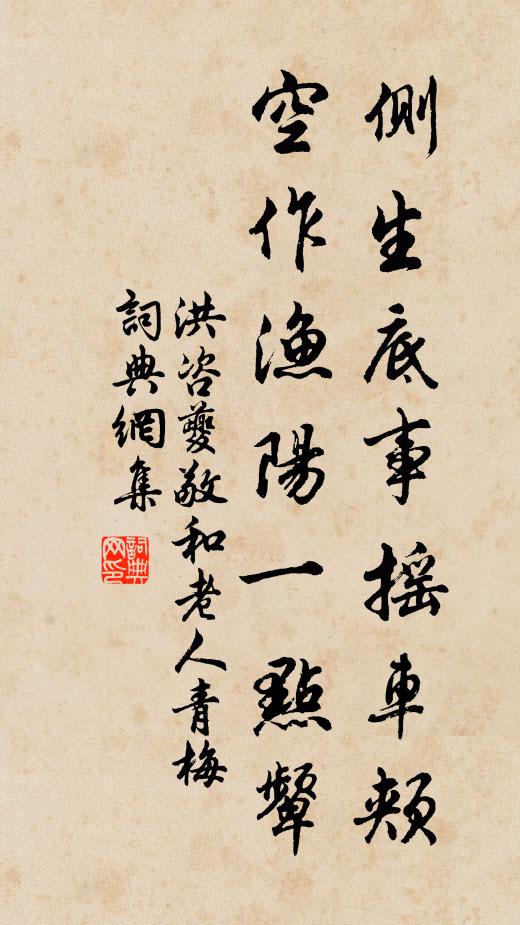 側生底事搖車頰
空作漁陽一點顰
洪咨夔敬和老人青梅
詞典網集
詞典网印